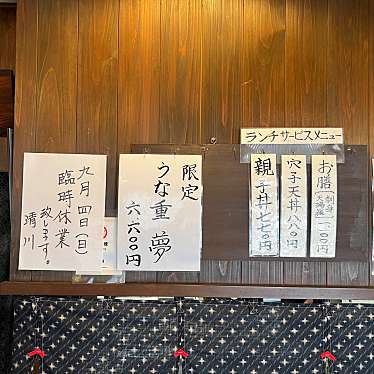 ランチサービスメニュー
お膳
刺身
天ぷら
一一〇〇円
穴子天丼 八八〇円
親子丼 七七〇円
限定
うな重 夢
六、六〇〇円
九月四日(日)
臨時休業
致します。
清川